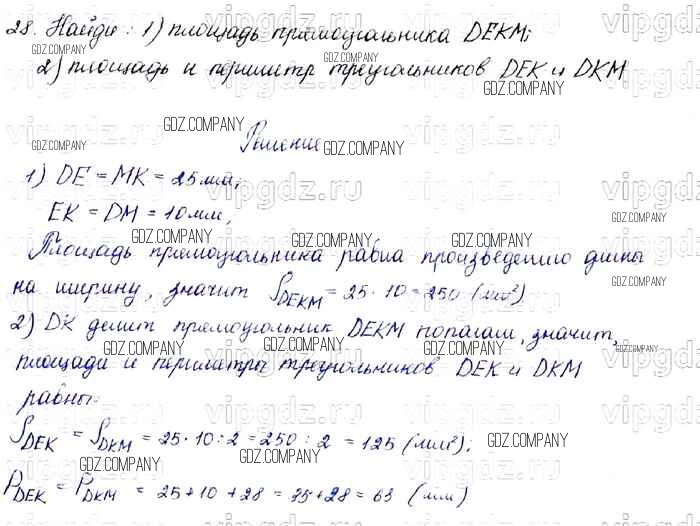 28. Найди: 1) площадь прямоугольника DEKM;
2) площадь и периметр треугольников DEK и DKM
Решение
1) DE = MK = 25 мм;
EK = DM = 10 мм,
Площадь прямоугольника равна произведению длины
на ширину, значит S DEKM = 25 · 10 = 250 (мм²)
2) DK делит прямоугольник DEKM пополам, значит,
площади и периметры треугольников DEK и DKM
равны.
S DEK = S DKM = 25 · 10 : 2 = 250 : 2 = 125 (мм²).
P DEK = P DKM = 25 + 10 + 28 = 35 + 28 = 63 (мм)